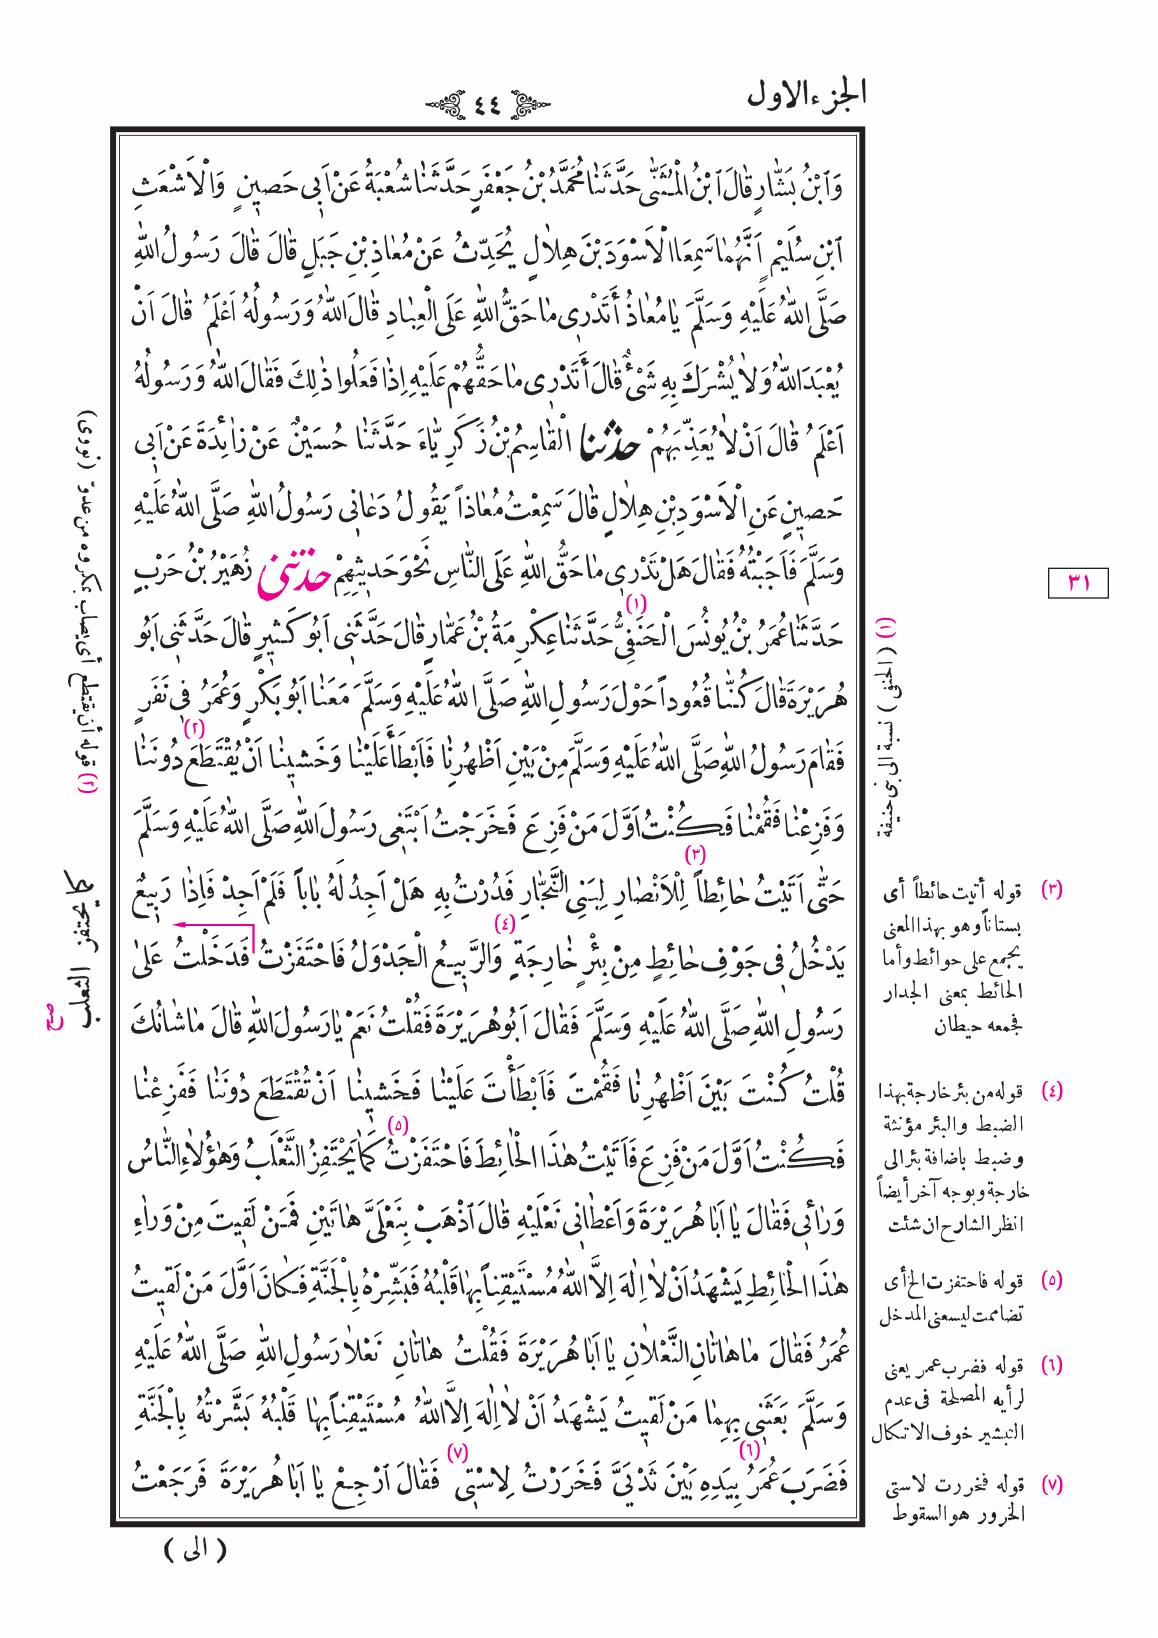 الجزء الاول
٤٤
وَابْنُ بَشَّارٍ قَالَ ابْنُ الْمُثَنَّى حَدَّثَنَا مُحَمَّدُ بْنُ جَعْفَرٍ حَدَّثَنَا شُعْبَةُ عَنْ اَبِي حَصِينٍ وَالْاَشْعَثِ
ابْنِ سُلَيْمٍ اَنَّهُمَا سَمِعَا الْاَسْوَدَ بْنَ هِلَالٍ يُحَدِّثُ عَنْ مُعَاذِ بْنِ جَبَلٍ قَالَ قَالَ رَسُولُ اللهِ
صَلَّى اللهُ عَلَيْهِ وَسَلَّمَ يَا مُعَاذُ أَتَدْرِي مَا حَقُّ اللهِ عَلَى الْعِبَادِ قَالَ اللهُ وَرَسُولُهُ اَعْلَمُ قَالَ اَنْ
يُعْبَدَ اللهُ وَلَا يُشْرَكَ بِهِ شَيْءٌ قَالَ أَتَدْرِي مَا حَقُّهُمْ عَلَيْهِ اِذَا فَعَلُوا ذٰلِكَ فَقَالَ اللهُ وَرَسُولُهُ
اَعْلَمُ قَالَ اَنْ لَا يُعَذِّبَهُمْ حدثنا الْقَاسِمُ بْنُ زَكَرِيَّاءَ حَدَّثَنَا حُسَيْنٌ عَنْ زَائِدَةَ عَنْ اَبِي
حَصِينٍ عَنِ الْاَسْوَدِ بْنِ هِلَالٍ قَالَ سَمِعْتُ مُعَاذاً يَقُولُ دَعَانِي رَسُولُ اللهِ صَلَّى اللهُ عَلَيْهِ
وَسَلَّمَ فَاَجَبْتُهُ فَقَالَ هَلْ تَدْرِي مَا حَقُّ اللهِ عَلَى النَّاسِ نَحْوَ حَدِيثِهِمْ حدثني زُهَيْرُ بْنُ حَرْبٍ
حَدَّثَنَا عُمَرُ بْنُ يُونُسَ الْحَنَفِيُّ (١) حَدَّثَنَا عِكْرِمَةُ بْنُ عَمَّارٍ قَالَ حَدَّثَنِي اَبُو كَثِيرٍ قَالَ حَدَّثَنِي اَبُو
هُرَيْرَةَ قَالَ كُنَّا قُعُوداً حَوْلَ رَسُولِ اللهِ صَلَّى اللهُ عَلَيْهِ وَسَلَّمَ مَعَنَا اَبُو بَكْرٍ وَعُمَرُ فِي نَفَرٍ
فَقَامَ رَسُولُ اللهِ صَلَّى اللهُ عَلَيْهِ وَسَلَّمَ مِنْ بَيْنِ اَظْهُرِنَا فَاَبْطَأَ عَلَيْنَا وَخَشِينَا اَنْ يُقْتَطَعَ (٢) دُونَنَا
وَفَزِعْنَا فَقُمْنَا فَكُنْتُ اَوَّلَ مَنْ فَزِعَ فَخَرَجْتُ اَبْتَغِي رَسُولَ اللهِ صَلَّى اللهُ عَلَيْهِ وَسَلَّمَ
حَتَّى اَتَيْتُ حَائِطاً (٣) لِلْاَنْصَارِ لِبَنِي النَّجَّارِ فَدُرْتُ بِهِ هَلْ اَجِدُ لَهُ بَاباً فَلَمْ اَجِدْ فَاِذَا رَبِيعٌ
يَدْخُلُ فِي جَوْفِ حَائِطٍ مِنْ بِئْرٍ خَارِجَةٍ (٤) وَالرَّبِيعُ الْجَدْوَلُ فَاحْتَفَزْتُ فَدَخَلْتُ عَلَى
رَسُولِ اللهِ صَلَّى اللهُ عَلَيْهِ وَسَلَّمَ فَقَالَ اَبُو هُرَيْرَةَ فَقُلْتُ نَعَمْ يَا رَسُولَ اللهِ قَالَ مَا شَانُكَ
قُلْتُ كُنْتَ بَيْنَ اَظْهُرِنَا فَقُمْتَ فَاَبْطَأْتَ عَلَيْنَا فَخَشِينَا اَنْ تُقْتَطَعَ دُونَنَا فَفَزِعْنَا
فَكُنْتُ اَوَّلَ مَنْ فَزِعَ فَاَتَيْتُ هٰذَا الْحَائِطَ فَاحْتَفَزْتُ (٥) كَمَا يَحْتَفِزُ الثَّعْلَبُ وَهٰؤُلَاءِ النَّاسُ
وَرَائِي فَقَالَ يَا اَبَا هُرَيْرَةَ وَاَعْطَانِي نَعْلَيْهِ قَالَ اذْهَبْ بِنَعْلَيَّ هَاتَيْنِ فَمَنْ لَقِيتَ مِنْ وَرَاءِ
هٰذَا الْحَائِطِ يَشْهَدُ اَنْ لَا اِلٰهَ اِلَّا اللهُ مُسْتَيْقِناً بِهَا قَلْبُهُ فَبَشِّرْهُ بِالْجَنَّةِ فَكَانَ اَوَّلَ مَنْ لَقِيتُ
عُمَرُ فَقَالَ مَا هَاتَانِ النَّعْلَانِ يَا اَبَا هُرَيْرَةَ فَقُلْتُ هَاتَانِ نَعْلَا رَسُولِ اللهِ صَلَّى اللهُ عَلَيْهِ
وَسَلَّمَ بَعَثَنِي بِهِمَا مَنْ لَقِيتُ يَشْهَدُ اَنْ لَا اِلٰهَ اِلَّا اللهُ مُسْتَيْقِناً بِهَا قَلْبُهُ بَشَّرْتُهُ بِالْجَنَّةِ
فَضَرَبَ عُمَرُ (٦) بِيَدِهِ بَيْنَ ثَدْيَيَّ فَخَرَرْتُ لِاسْتِي (٧) فَقَالَ ارْجِعْ يَا اَبَا هُرَيْرَةَ فَرَجَعْتُ
( الى )
٣١
(١) ( الحنفى ) نسبة الى بنى حنيفة
(٣) قوله أتيت حائطاً أى
بستاناً وهو بهذا المعنى
يجمع على حوائط وأما
الحائط بمعنى الجدار
فجمعه حيطان
(٤) قوله من بئر خارجة بهذا
الضبط والبئر مؤنثة
وضبط باضافة بئر الى
خارجة وبوجه آخر أيضاً
انظر الشارح ان شئت
(٥) قوله فاحتفزت الخ أى
تضاممت ليسعنى المدخل
(٦) قوله فضرب عمر يعنى
لرأيه المصلحة فى عدم
التبشير خوف الاتكال
(٧) قوله فخررت لاستى
الخرور هو السقوط
(٢) قوله أن يقتطع أى يصاب بمكروه من عدوّ (نووى)
كما يحتفز الثعلب
صح